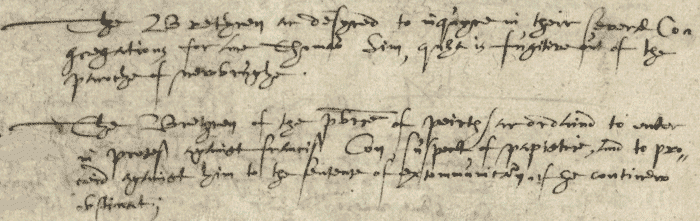 The Brethren ar desyred to inquyre in their severall Con
gregations for ane Thomas Sim, quha is fugitive out of the
paroche of newbrughe.
The Brethren of the pbrie of peirth ar ordaind to enter
in proces against francis Con suspect of papistrie, and to pro-
ceid against him to the sentence of excommunication if he continew
obstinat;